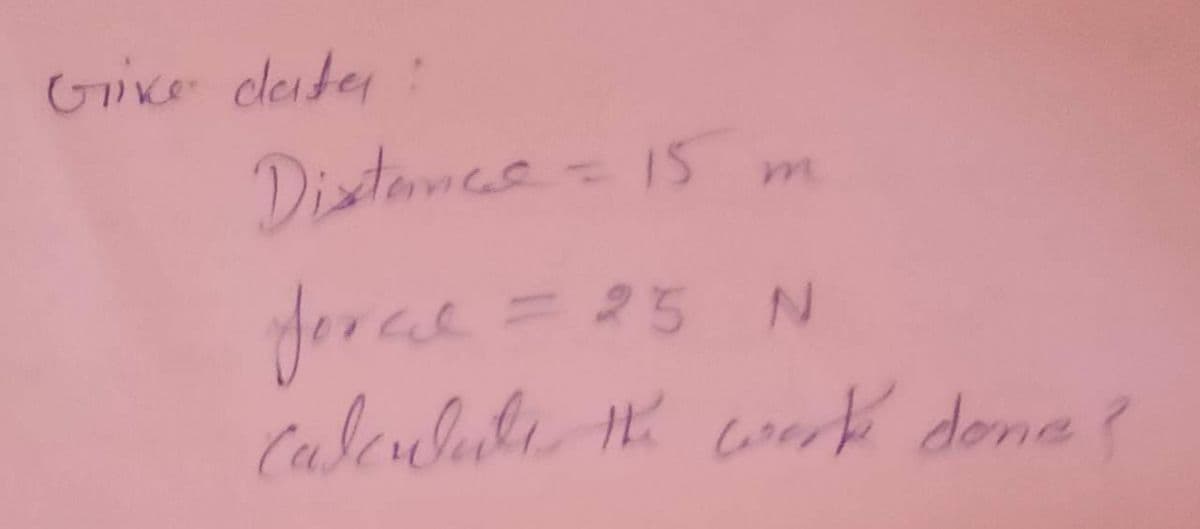 Give data :
Distance = 15 m
force = 25 N
Calculate the work done ?